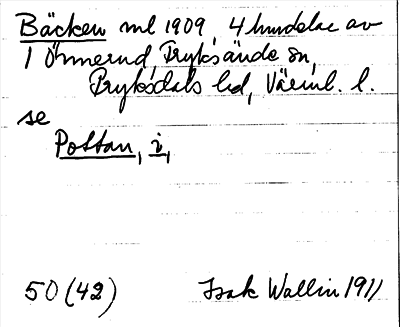 Bäcken ml 1909, 4 hundelar av
1 Ömmernd, Fryksände sn,
Fryksdals hd, Värml. l.
se
Pottan, i,
50 (42) Isak Wallin 1911